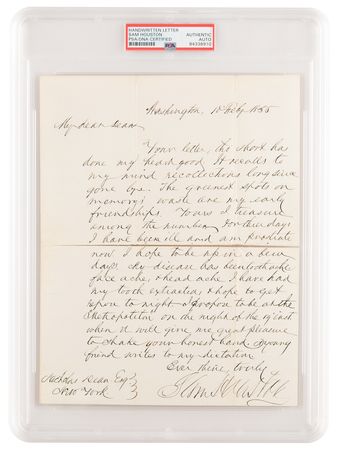 HANDWRITTEN LETTER
SAM HOUSTON
PSA/DNA CERTIFIED
AUTHENTIC
AUTO
PSA
84338910
Washington, 10 Feby 1855
My Dear Dean,
Your letter, tho short has
done my heart good. It recalls to
my mind recollections long since
gone by. The greenest spots on
memory's waste are my early
friendships. Yours I treasure
among the number. For three days
I have been ill and am prostrate
now. I hope to be up in a few
days. My disease has been toothache
face ache, & head ache. I have had
my tooth extracted, & hope to get
upon to night. I propose to be at the
Metropolitan on the night of the 19 inst
when it will give me great pleasure
to shake your honest hand. A young
friend writes to my dictation.
Ever thine, truly
Sam Houston
Nicholas Dean Esq
New York